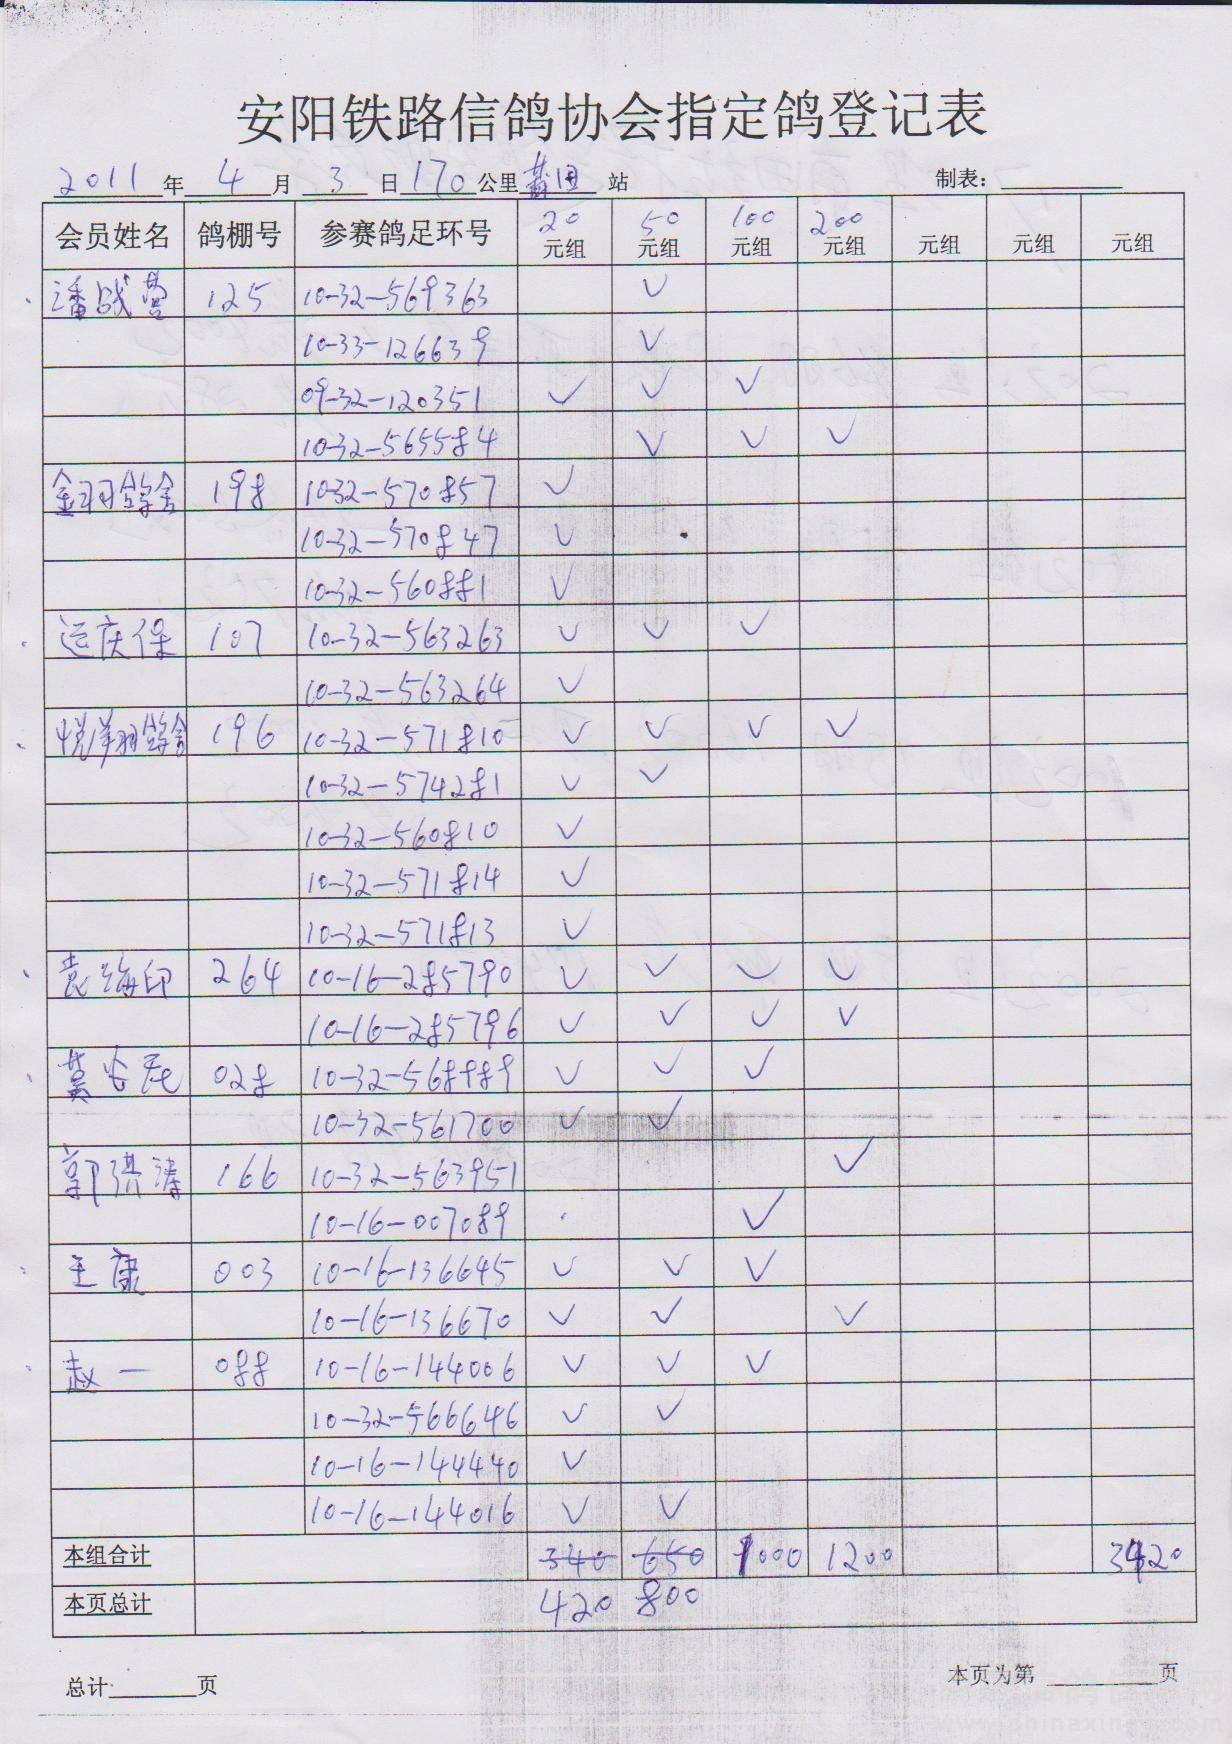 安阳铁路信鸽协会指定鸽登记表
2011年 4月 3日 170公里莆田站 制表：
会员姓名 鸽棚号 参赛鸽足环号 20元组 50元组 100元组 200元组 元组 元组 元组
潘战营 125 10-32-569363 ✓
10-33-126639 ✓
09-32-120351 ✓ ✓ ✓
10-32-565584 ✓ ✓ ✓
金羽鸽舍 198 10-32-570857 ✓
10-32-570847 ✓
10-32-560881 ✓
运庆保 107 10-32-563263 ✓ ✓ ✓
10-32-563264 ✓
悦洋翔鸽舍 196 10-32-571810 ✓ ✓ ✓ ✓
10-32-574281 ✓ ✓
10-32-560810 ✓
10-32-571814 ✓
10-32-571813 ✓
袁海印 264 10-16-285790 ✓ ✓ ✓ ✓
10-16-285796 ✓ ✓ ✓ ✓
028 10-32-568989 ✓ ✓ ✓
10-32-561700 ✓ ✓
郭洪涛 166 10-32-563951 ✓
10-16-007089 ✓
王康 003 10-16-136645 ✓ ✓ ✓
10-16-136670 ✓ ✓ ✓
赵一 088 10-16-144006 ✓ ✓ ✓
10-32-566646 ✓ ✓
10-16-144440 ✓
10-16-144016 ✓ ✓
本组合计 340 650 1000 1200 3420
本页总计 420 800
总计 页 本页为第 页